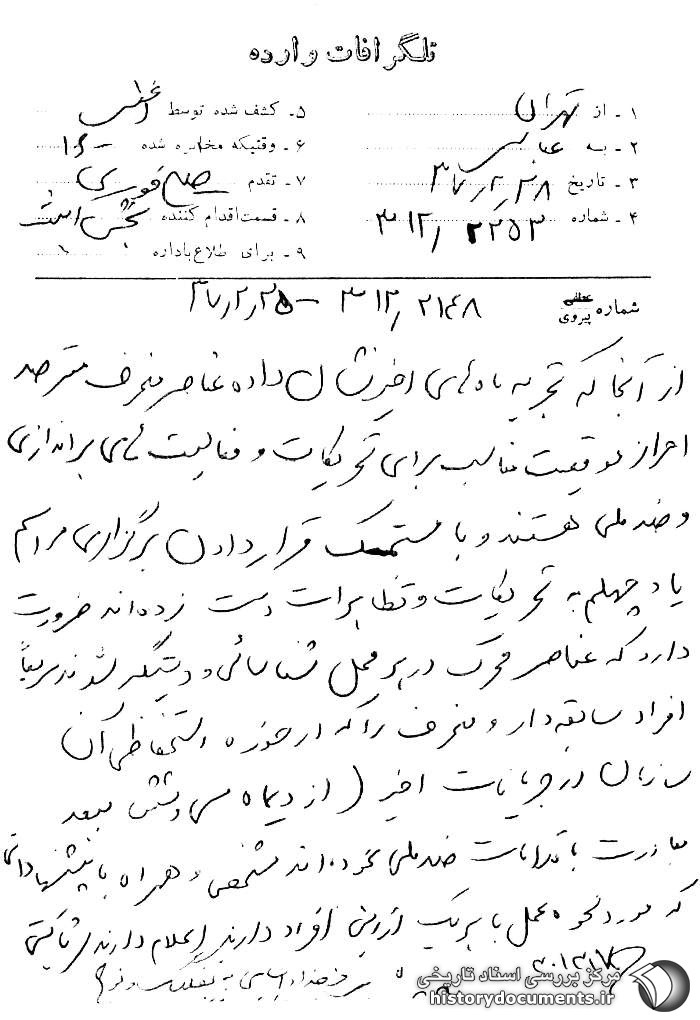 تلگرافات وارده
۱ - از تهران
۲ - به عباسی
۳ - تاریخ ۳۷٫۲٫۲۸
۴ - شماره ۳۱۲٫ ۲۲۵۳
۵ - کشف شده توسط
۶ - وقتیکه مخابره شده ۱۶۰۰
۷ - تقدم
۸ - قسمت اقدام کننده بخش
۹ - برای طلاع باداره
شماره عطفی پیروی ۳۱۲٫ ۲۱۴۸ – ۳۷٫۲٫۲۵
از آنجا که تجربه ماه‌های اخیر نشان داده عناصر منحرف مترصد
احراز موقعیت مناسب برای تحریکات و فعالیت های براندازی
و ضد ملی هستند و با مستمسک قرار دادن برگزاری مراسم
یاد چهلم به تحریکات و تظاهرات دست زده‌اند ضرورت
دارد که عناصر محرک در هر محل شناسائی و دستگیر شوند سریعاً
افراد سابقه دار و منحرف را که از حوزه استحفاظی آن
سازمان در جریانات اخیر ( از دیماه سی و شش ببعد
مبادرت باقدامات ضد ملی نموده‌اند مشخص و همراه با پیشنهاداتی
که در مورد نحوه عمل با هریک از این افراد دارند اعلام دارند ثابتی
مرکز بررسی اسناد تاریخی
historydocuments.ir